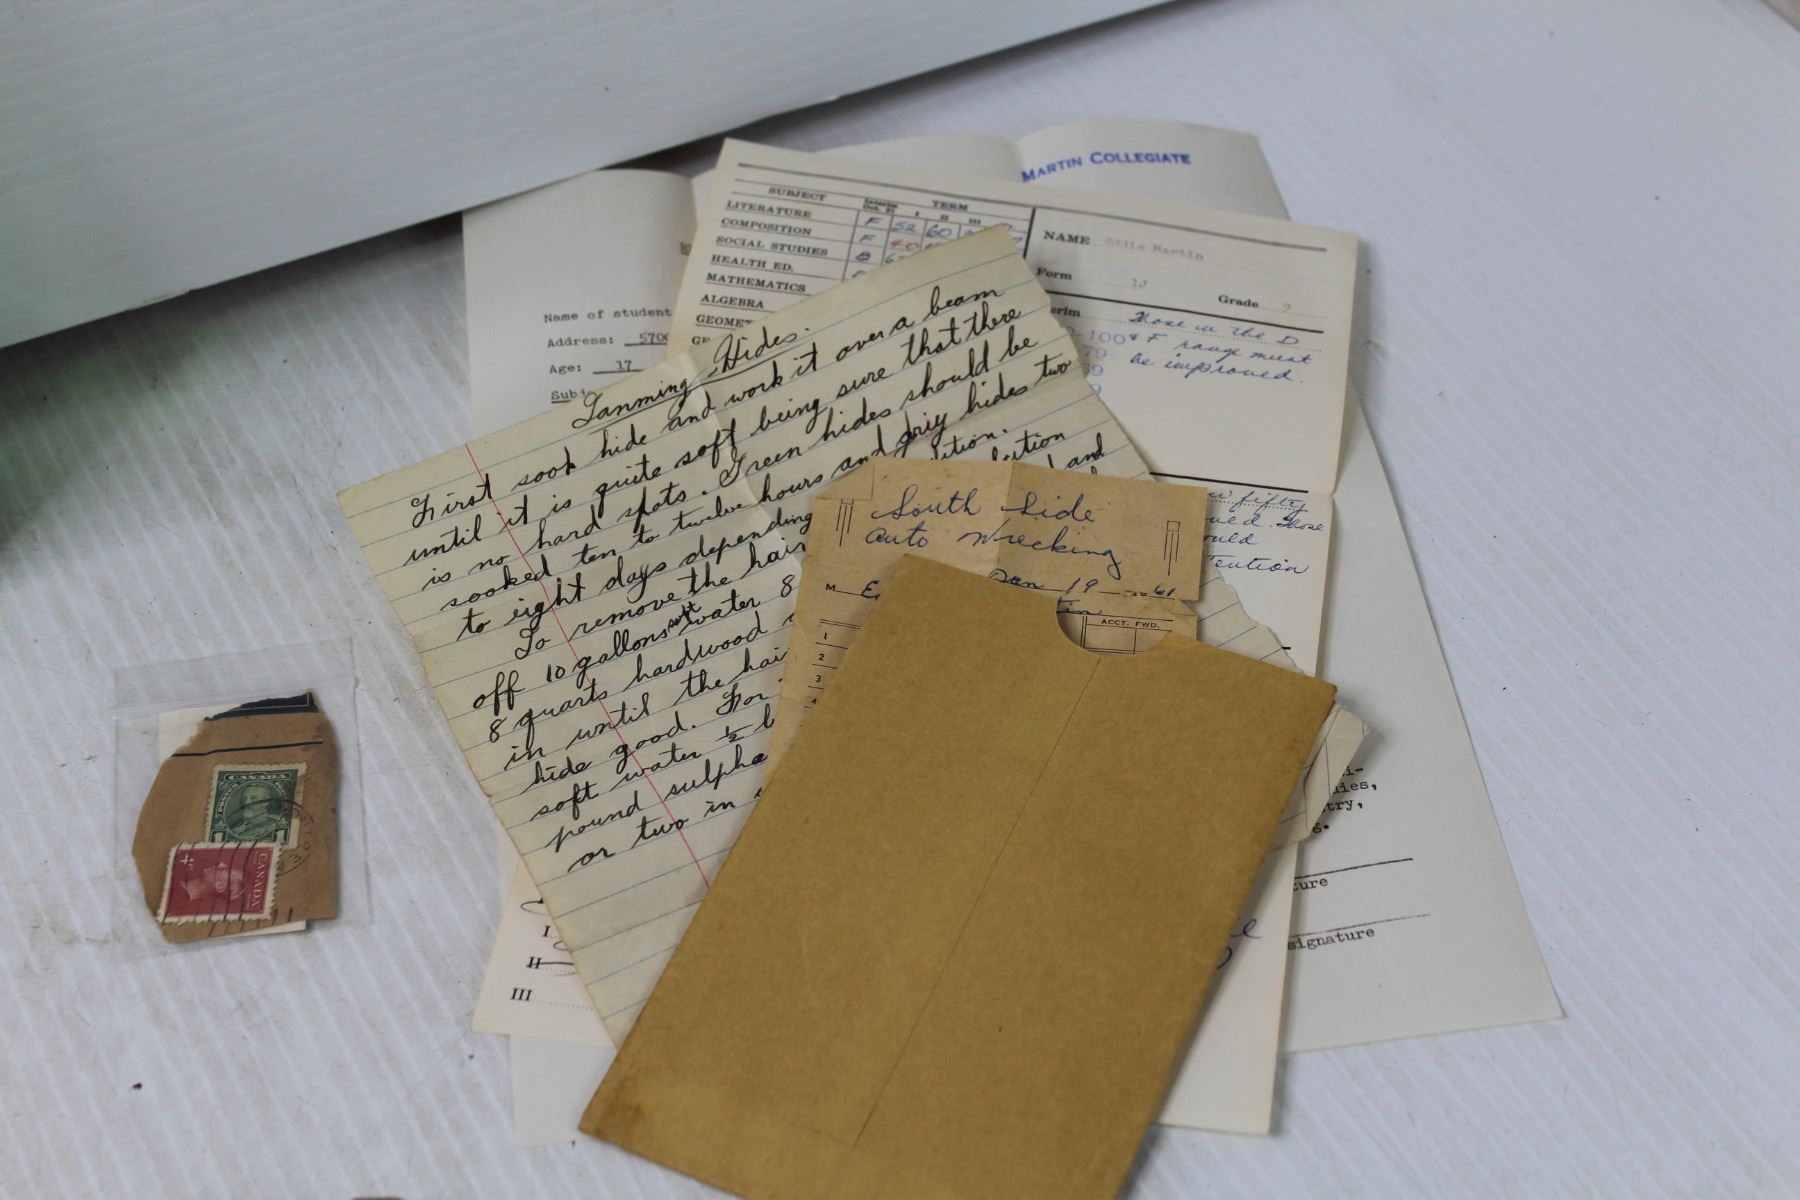 MARTIN COLLEGIATE
SUBJECT
TERM
Interim
Oct. 21
I
II
III
LITERATURE F 52 60
COMPOSITION F 40
SOCIAL STUDIES B
HEALTH ED.
MATHEMATICS
ALGEBRA
GEOMET
NAME Martin
Form 1J
Grade 9
erim
Those in the D
-100 & F range must
79 be improved.
69
9
w fifty
ved. Those
ould
tention
Name of student
Address: 5700
Age: 17
Subj
Tanming Hides.
First sook hide and work it over a beam
until it is quite soft being sure that there
is no hard spots. Green hides should be
sooked ten to twelve hours and driy hides two
to eight days depending dition.
To remove the hair lution
off 10 gallons soft water 8 and
8 quarts hardwood
in until the hai
hide good. For
soft water ½ b
pound sulpha
or two in
South Side
Auto Wrecking
Jan 19 61
M
tin
ACCT. FWD.
1
2
3
4
I
II
III
i-
dies,
try,
g.
ture
signature
CANADA
POSTES
POSTAGE
1
1
4c
CANADA